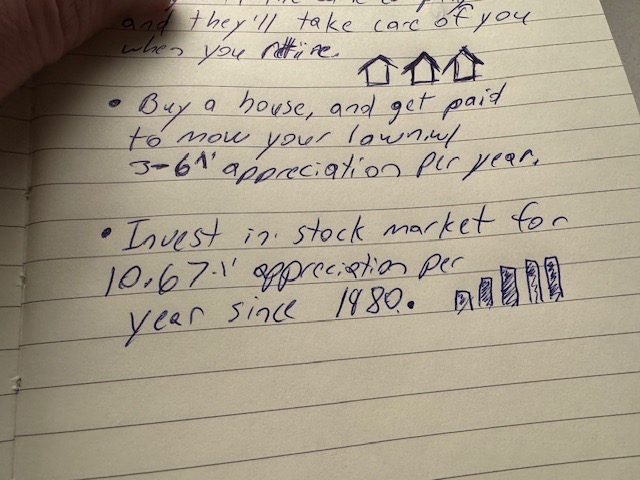 and they'll take care of you
when you retire.
• Buy a house, and get paid
to mow your lawn w/
3-6% appreciation per year.
• Invest in stock market for
10.67% appreciation per
year since 1980.